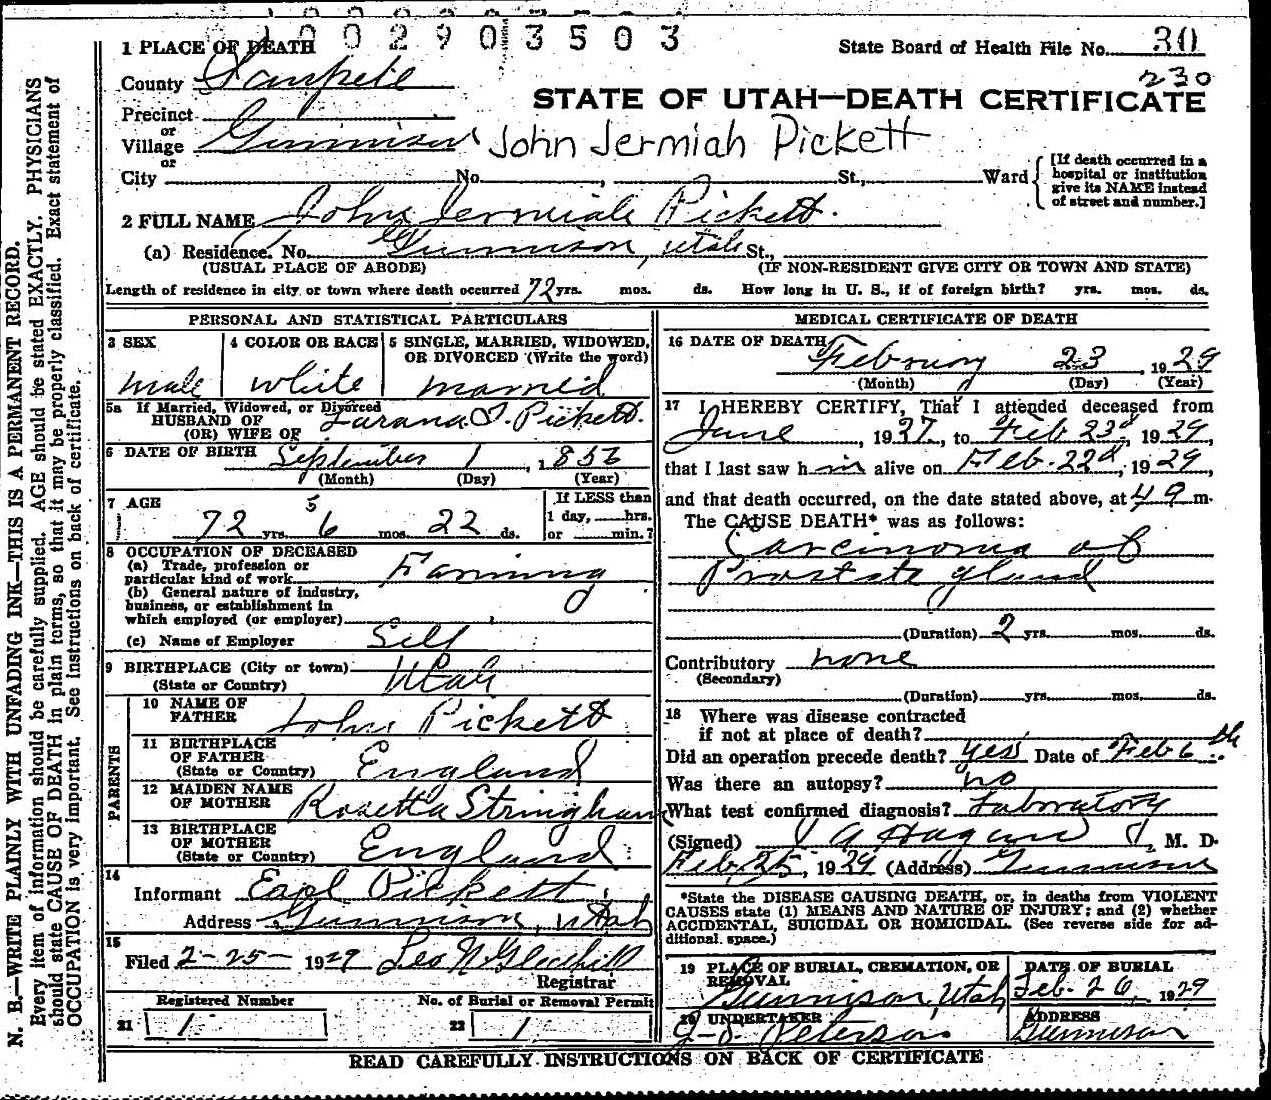 1002903503
1 PLACE OF DEATH
State Board of Health File No. 30
230
County Sanpete
STATE OF UTAH—DEATH CERTIFICATE
Precinct
or
Village Gunnison John Jermiah Pickett
or
City No. , St., Ward
[If death occurred in a
hospital or institution
give its NAME instead
of street and number.]
2 FULL NAME John Jermiah Pickett.
(a) Residence. No. Gunnison, Utah St.,
(USUAL PLACE OF ABODE) (IF NON-RESIDENT GIVE CITY OR TOWN AND STATE)
Length of residence in city or town where death occurred 72 yrs. mos. ds. How long in U. S., if of foreign birth? yrs. mos. ds.
PERSONAL AND STATISTICAL PARTICULARS
3 SEX
male
4 COLOR OR RACE
white
5 SINGLE, MARRIED, WIDOWED,
OR DIVORCED (Write the word)
married
5a If Married, Widowed, or Divorced
HUSBAND OF
(OR) WIFE OF Pickett.
6 DATE OF BIRTH September 1, 1856
(Month) (Day) (Year)
7 AGE
5
72 yrs. 6 mos. 22 ds.
If LESS than
1 day, hrs.
or min.?
8 OCCUPATION OF DECEASED
(a) Trade, profession or
particular kind of work Farming
(b) General nature of industry,
business, or establishment in
which employed (or employer)
(c) Name of Employer Self
9 BIRTHPLACE (City or town)
(State or Country) Utah
PARENTS
10 NAME OF
FATHER John Pickett
11 BIRTHPLACE
OF FATHER
(State or Country) England
12 MAIDEN NAME
OF MOTHER Rosetta Stringham
13 BIRTHPLACE
OF MOTHER
(State or Country) England
14
Informant Earl Pickett
Address Gunnison, Utah
15
Filed 2-25- 1929 Leo N Gledhill
Registrar
Registered Number No. of Burial or Removal Permit
21 1 22 1
MEDICAL CERTIFICATE OF DEATH
16 DATE OF DEATH February 23, 1929
(Month) (Day) (Year)
17 I HEREBY CERTIFY, That I attended deceased from
June, 1927, to Feb 23d, 1929,
that I last saw him alive on Feb. 22d, 1929,
and that death occurred, on the date stated above, at m.
The CAUSE DEATH* was as follows:
Carcinoma of
Prostate gland
(Duration) 2 yrs. mos. ds.
Contributory none
(Secondary)
(Duration) yrs. mos. ds.
18 Where was disease contracted
if not at place of death?
Did an operation precede death? yes Date of Feb 6th
Was there an autopsy? no
What test confirmed diagnosis? Laboratory
(Signed) , M. D.
Feb. 25, 1929 (Address) Gunnison
*State the DISEASE CAUSING DEATH, or, in deaths from VIOLENT
CAUSES state (1) MEANS AND NATURE OF INJURY; and (2) whether
ACCIDENTAL, SUICIDAL OR HOMICIDAL. (See reverse side for ad-
ditional space.)
19 PLACE OF BURIAL, CREMATION, OR
REMOVAL
Gunnison, Utah
DATE OF BURIAL
Feb. 26, 1929
20 UNDERTAKER
Peterson
ADDRESS
Gunnison
READ CAREFULLY INSTRUCTIONS ON BACK OF CERTIFICATE
N. B.—WRITE PLAINLY WITH UNFADING INK—THIS IS A PERMANENT RECORD.
Every item of information should be carefully supplied. AGE should be stated EXACTLY. PHYSICIANS
should state CAUSE OF DEATH in plain terms, so that it may be properly classified. Exact statement of
OCCUPATION is very important. See instructions on back of certificate.